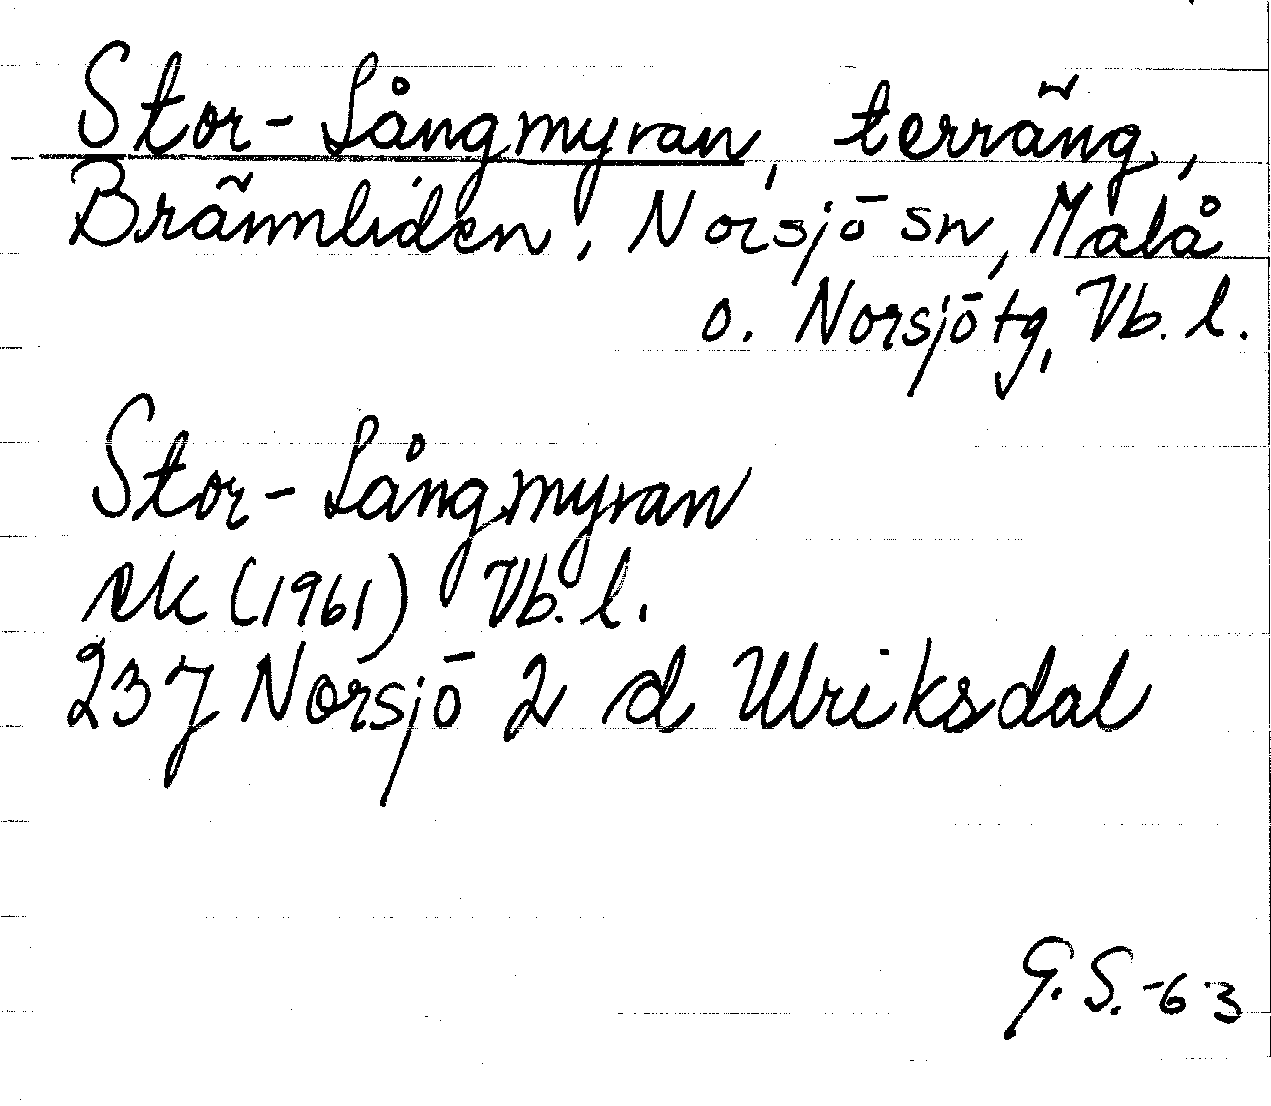 Stor-Långmyran, terräng,
Brännliden, Norsjö sn, Malå
o. Norsjö tg, Vb. l.
Stor-Långmyran
ek (1961) Vb. l.
237 Norsjö 2 d Ulriksdal
G. S. -63